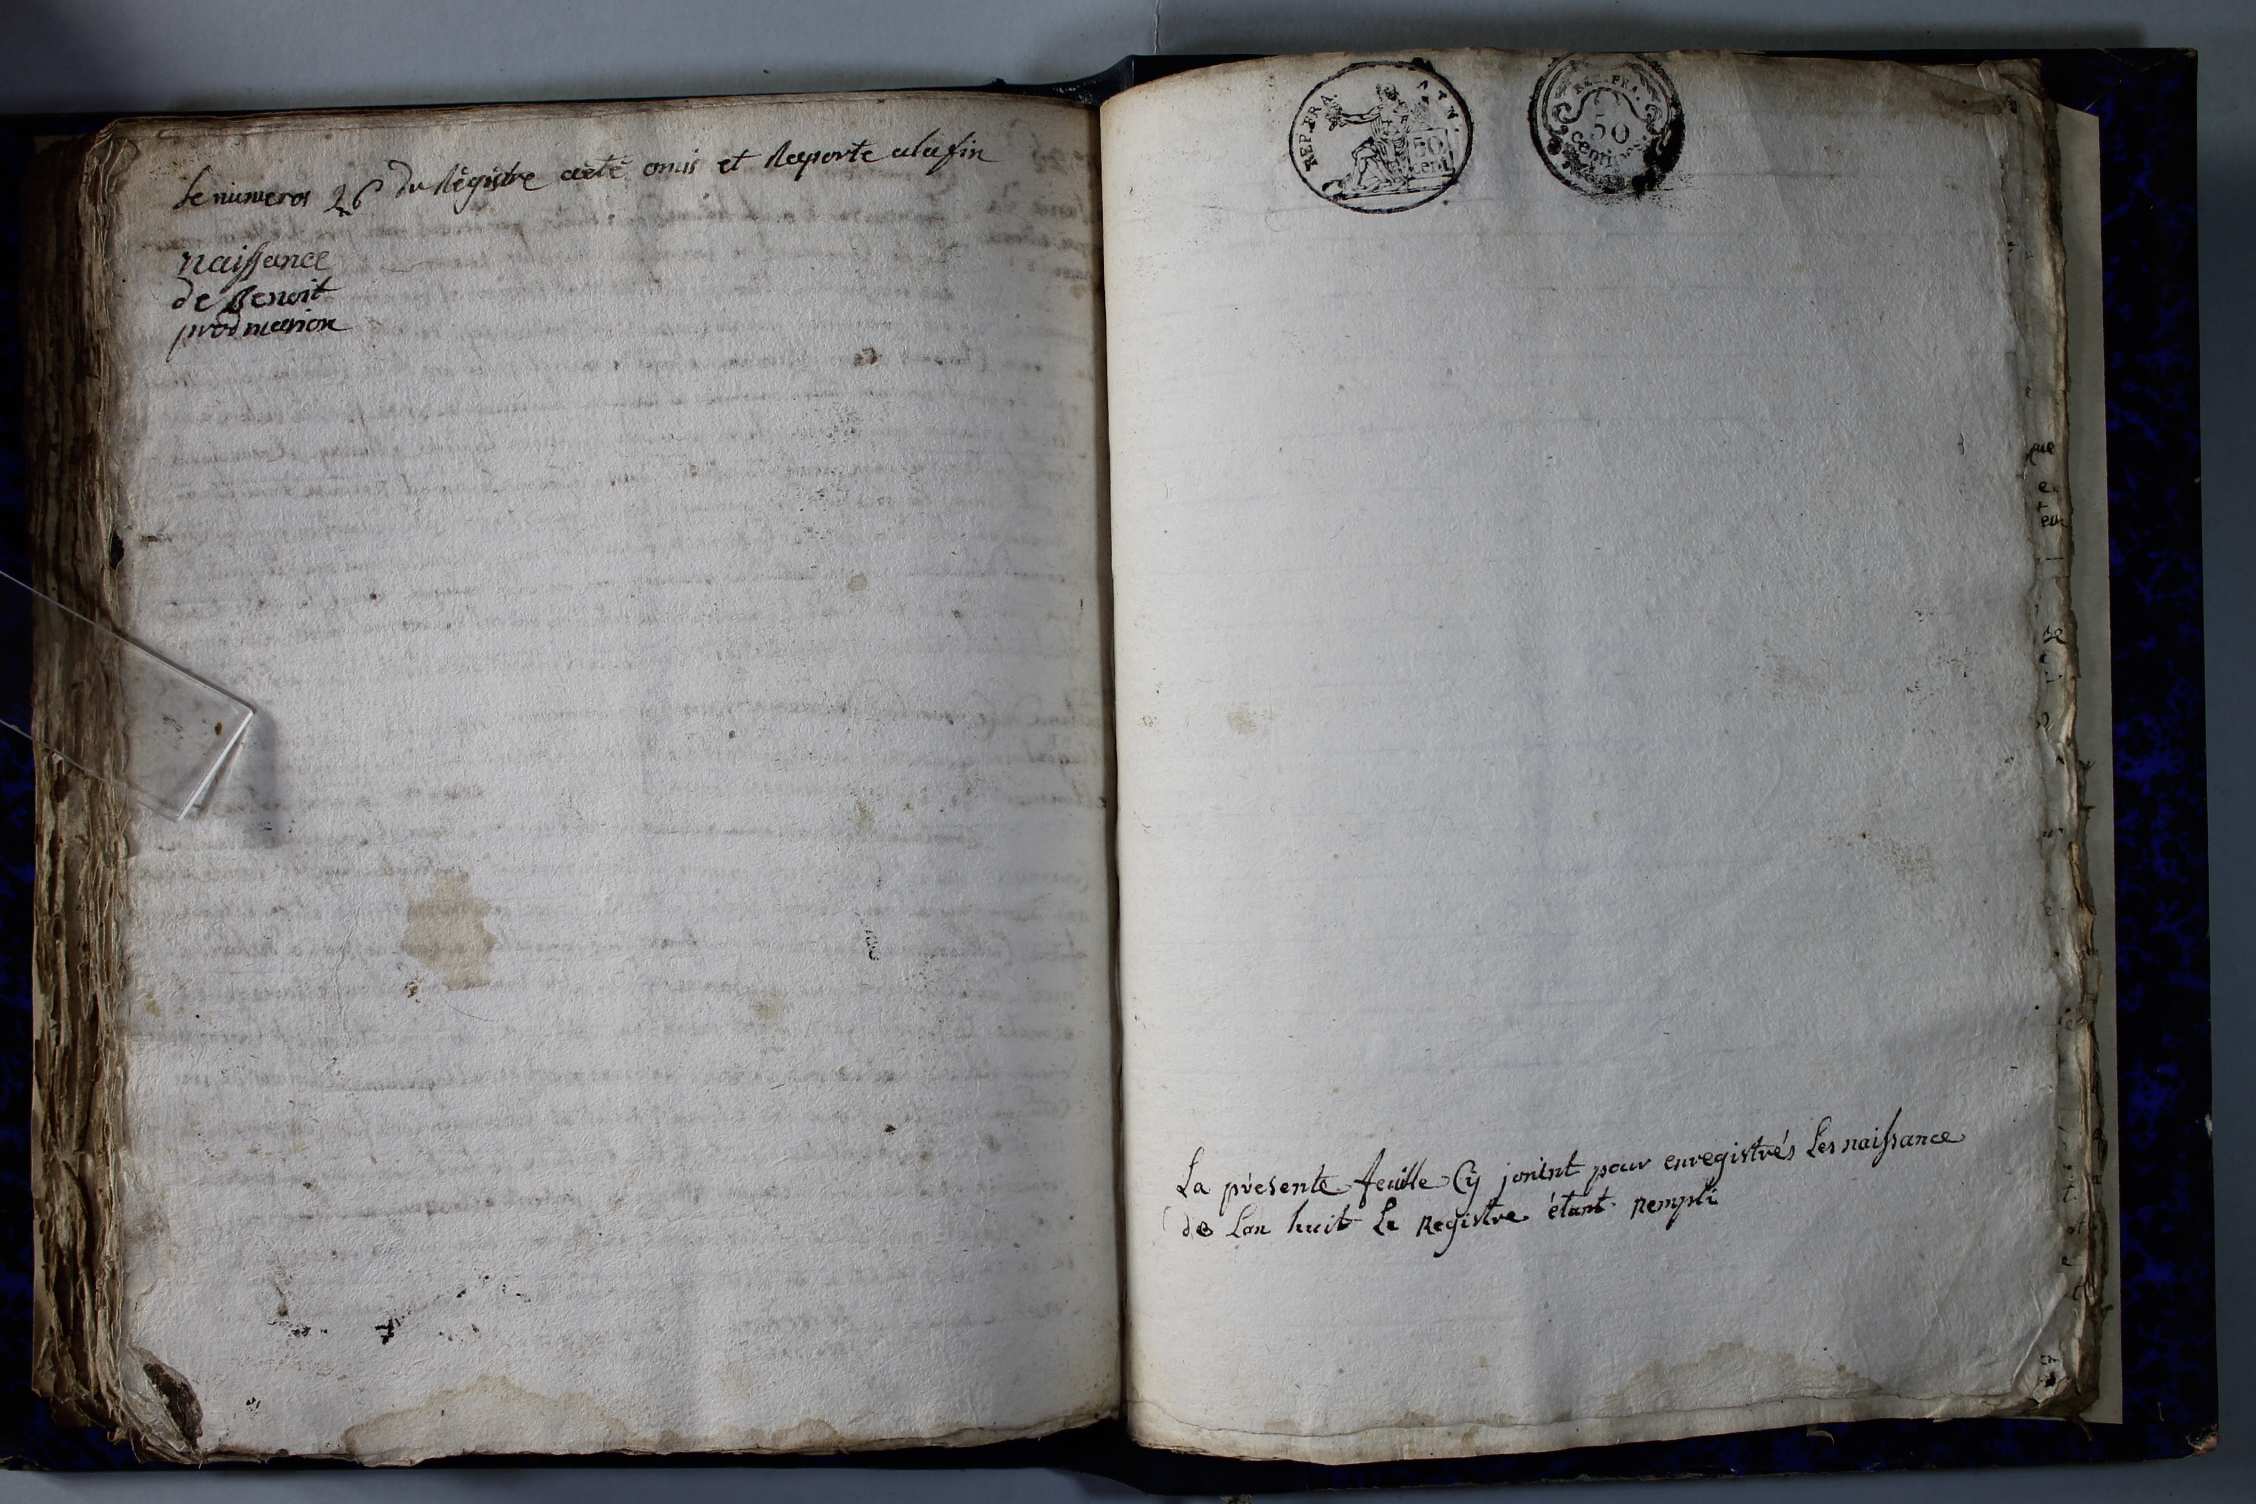 Le numeros 26 du Régistre aété omis et Raporte alafin
naissance
de Benoit
prodmarion
REP. FRA.
50
cent
REP. FRA.
50
centimes
La présente feuille Cy jonint pour enregistrés Les naissance
de Lan huit Le Registre étant rempli